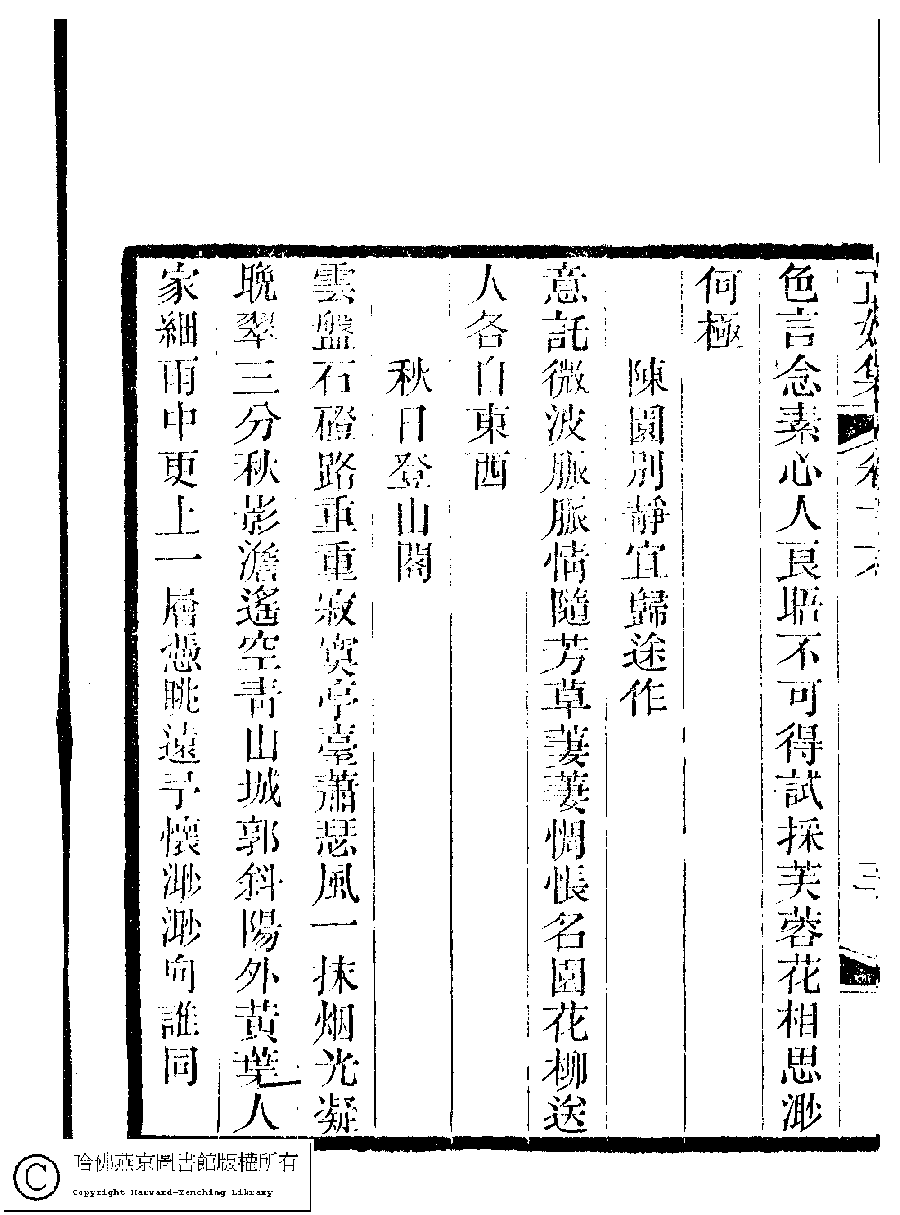 色言念素心人良晤不可得試採芙蓉花相思渺
何極
陳園別靜宜歸途作
意託微波脈脈情隨芳草萋萋惆悵名園花柳送
人各自東西
秋日登山閣
雲盤石磴路重重寂寞亭臺蕭瑟風一抹烟光凝
晚翠三分秋影澹遙空青山城郭斜陽外黃葉人
家細雨中更上一層憑眺遠予懷渺渺向誰同
哈佛燕京圖書館版權所有
Copyright Harvard-Yenching Library